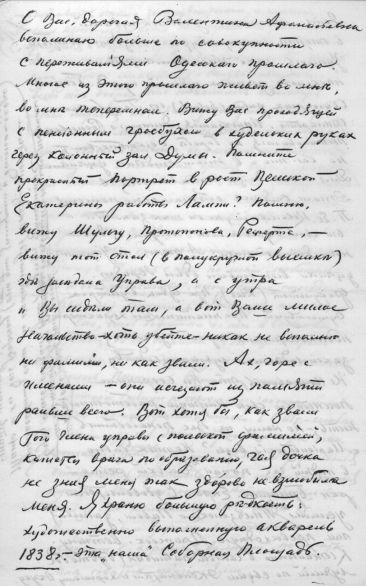 О Вас, дорогая Валентина Афанасьевна
вспоминаю больше по совокупности
с переживаниями Одесского прошлого.
Многое из этого прошлого живёт во мне,
во мне теперешнем. Вижу Вас проходящей
с пенсионным гроссбухом в худеньких руках
через колонный зал Думы. Помните
прекрасный портрет в рост Великой
Екатерины работы Лампи? Помню,
вижу Шульгу, Протопопова, Реперте, —
вижу тот стол (в полукруглой выемке)
где заседала Управа, а с утра
и Вы сидели там, а вот Ваше милое
начальство – хоть убейте – никак не вспомню
ни фамилии, ни как звали. Ах, горе с
именами – они исчезают из памяти
раньше всего. Вот хотя бы, как звали
того члена управы с польской фамилией,
кажется врача по образованию, чья дочка
не зная меня так здорово не взлюбила
меня. Я храню большую редкость:
художественно выполненную акварель
1838 г. – Это „наша" Соборная Площадь.